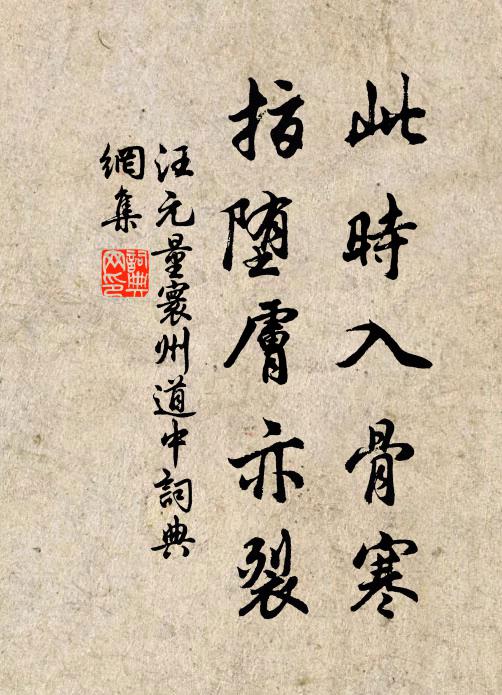 此時入骨寒
指墮膚亦裂
汪元量寰州道中詞典
網集
詞典
网印